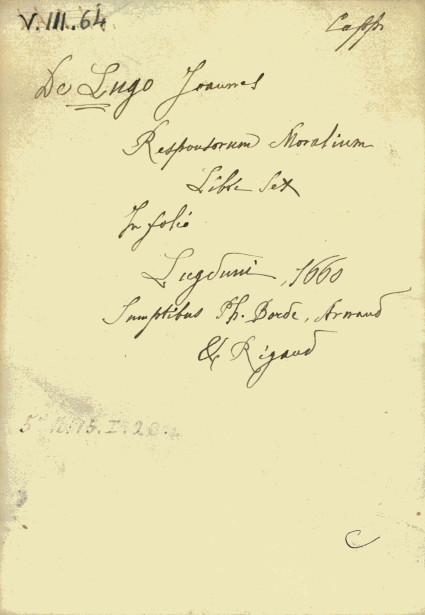 V.III.64
De Lugo Joannes
Responsorum Moralium
Libr. Sex
In folio
Lugduni, 1660
Sumptibus Ph. Borde, Arnaud
& Rigaud